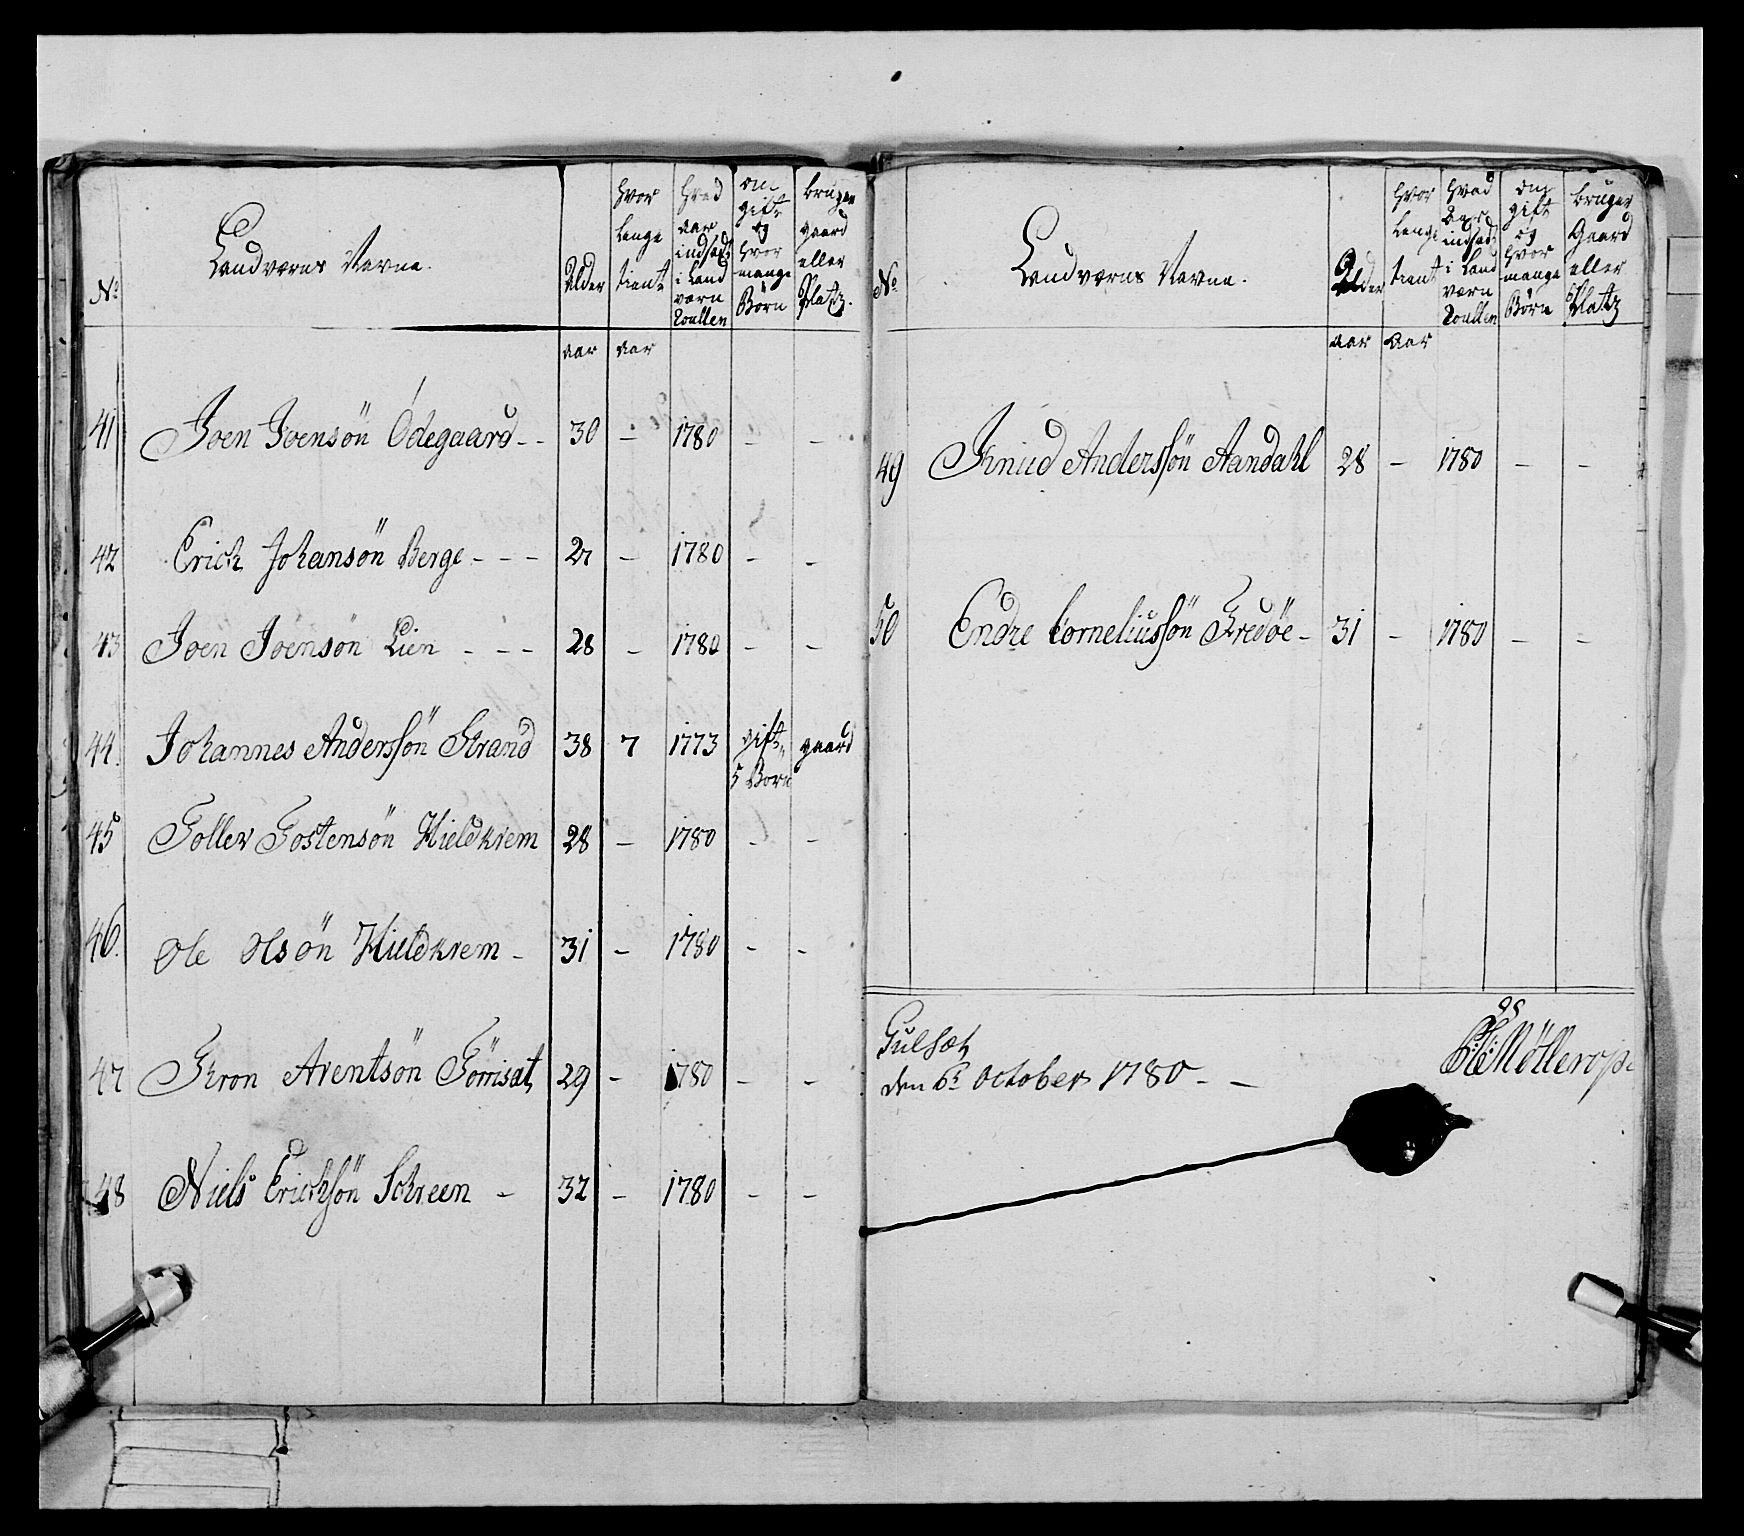 No
Landværns Navne.
Alder
hvor
lenge
tient
hvad
aar
indsadt
i Land
værn
Roullen
om
gift
og
hvor
mange
Børn
bruger
gaard
eller
Platz.
aar aar
41 Joen Joensön Ödegaard - - 30 - 1780 - -
42 Erich Johansön Berge - - - 27 - 1780 - -
43 Joen Joensön Lien - - - 28 - 1780 - -
44. Johannes Anderssön Strand 38 7 1773 gift gaard
5 Born
45 Toller Tostensön Kieldkrem 28 - 1780 - -
46. Ole Olsön Kieldkrem - 31 - 1780 - -
47 Tkron Arentsön 29 - 1780 - -
48 Niels Erichsön Schreen - 32 - 1780 - -
No
Landværns Navne.
Alder
hvor
lenge
tient
hvad
Aar
indsadt
i Land
værn
Roullen
om
gift
og
hvor
mange
Børn
bruger
Gaard
eller
Platz
aar Aar
49 Knud Anderssön Aandahl 28 - 1780 - -
50 Endre Corneliussön Fredöe - 31 - 1780 - -
Gulsæt
den 6te October 1780 - -
Möllerop